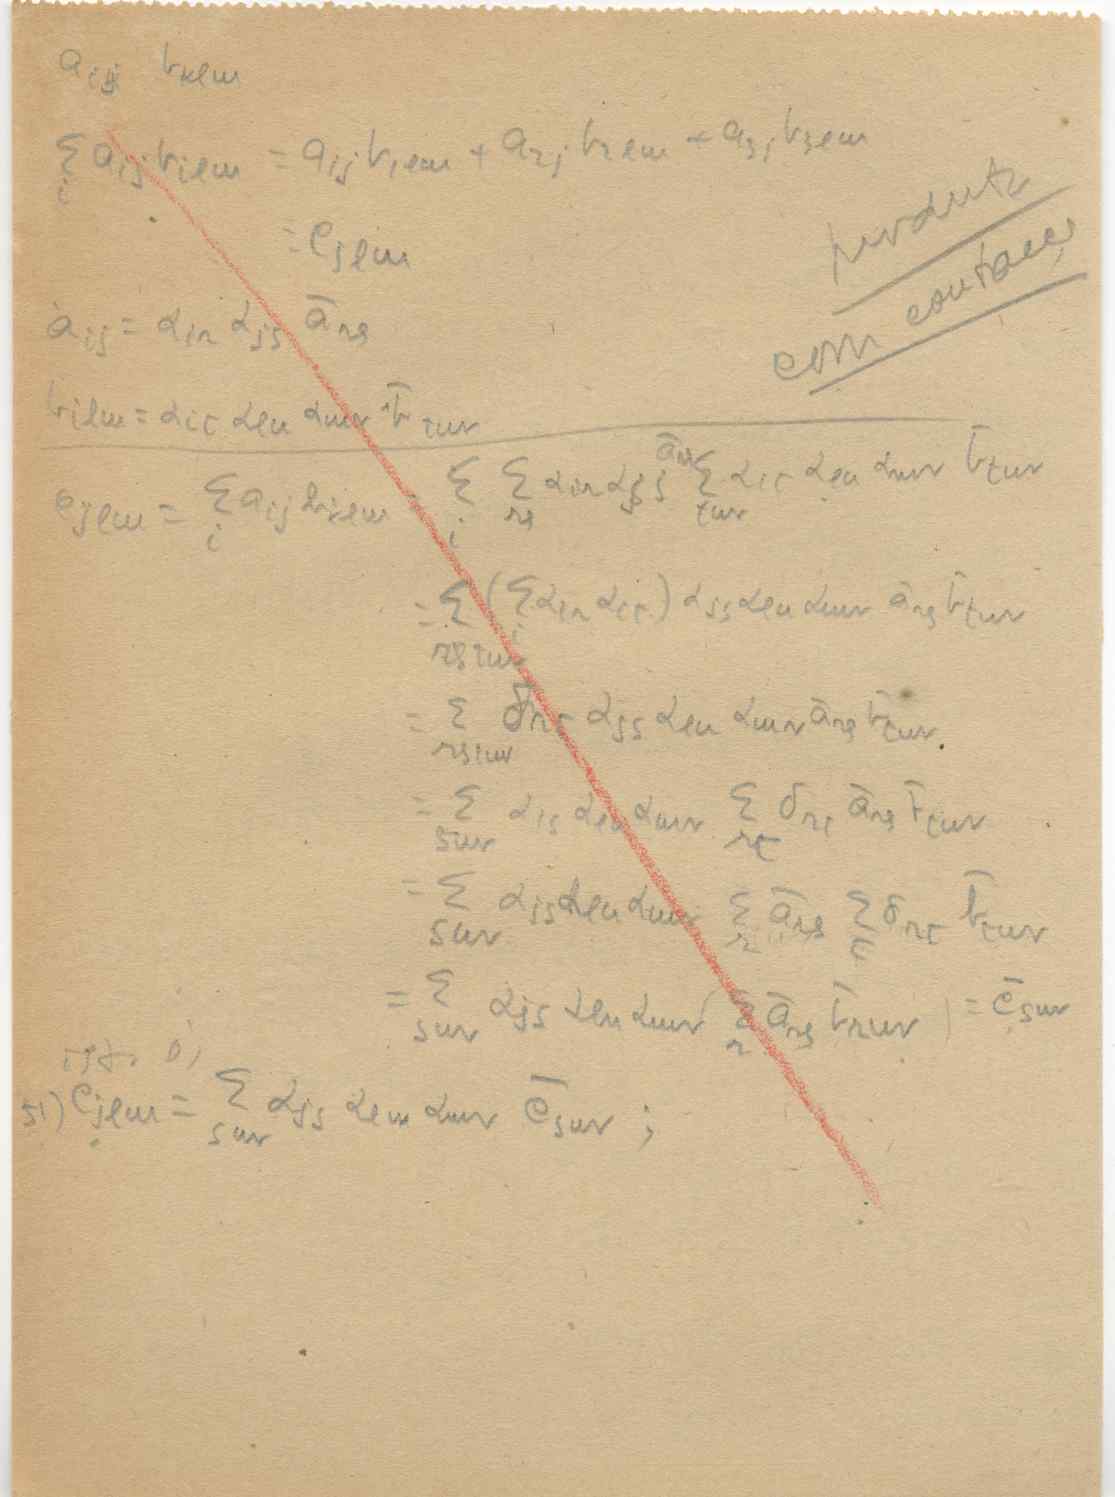 a_ij b_klm
∑_i a_ij b_ilm = a_1j b_1lm + a_2j b_2lm + a_3j b_3lm
= c_jlm
produto
com contraç
a_ij = α_ir α_js ā_rs
b_ilm = α_it α_lu α_mv b̄_tuv
c_jlm = ∑_i a_ij b_ilm = ∑_i ∑_rs α_ir α_js ā_rs ∑_tuv α_it α_lu α_mv b̄_tuv
= ∑_rstuv (∑_i α_ir α_it) α_js α_lu α_mv ā_rs b̄_tuv
= ∑_rstuv δ_rt α_js α_lu α_mv ā_rs b̄_tuv
= ∑_suv α_js α_lu α_mv ∑_rt δ_rt ā_rs b̄_tuv
= ∑_suv α_js α_lu α_mv ∑_r ā_rs ∑_t δ_rt b̄_tuv
= ∑_suv α_js α_lu α_mv ∑_r ā_rs b̄_ruv | = c̄_suv
51) c_jlm = ∑_suv α_js α_lu α_mv c̄_suv ;